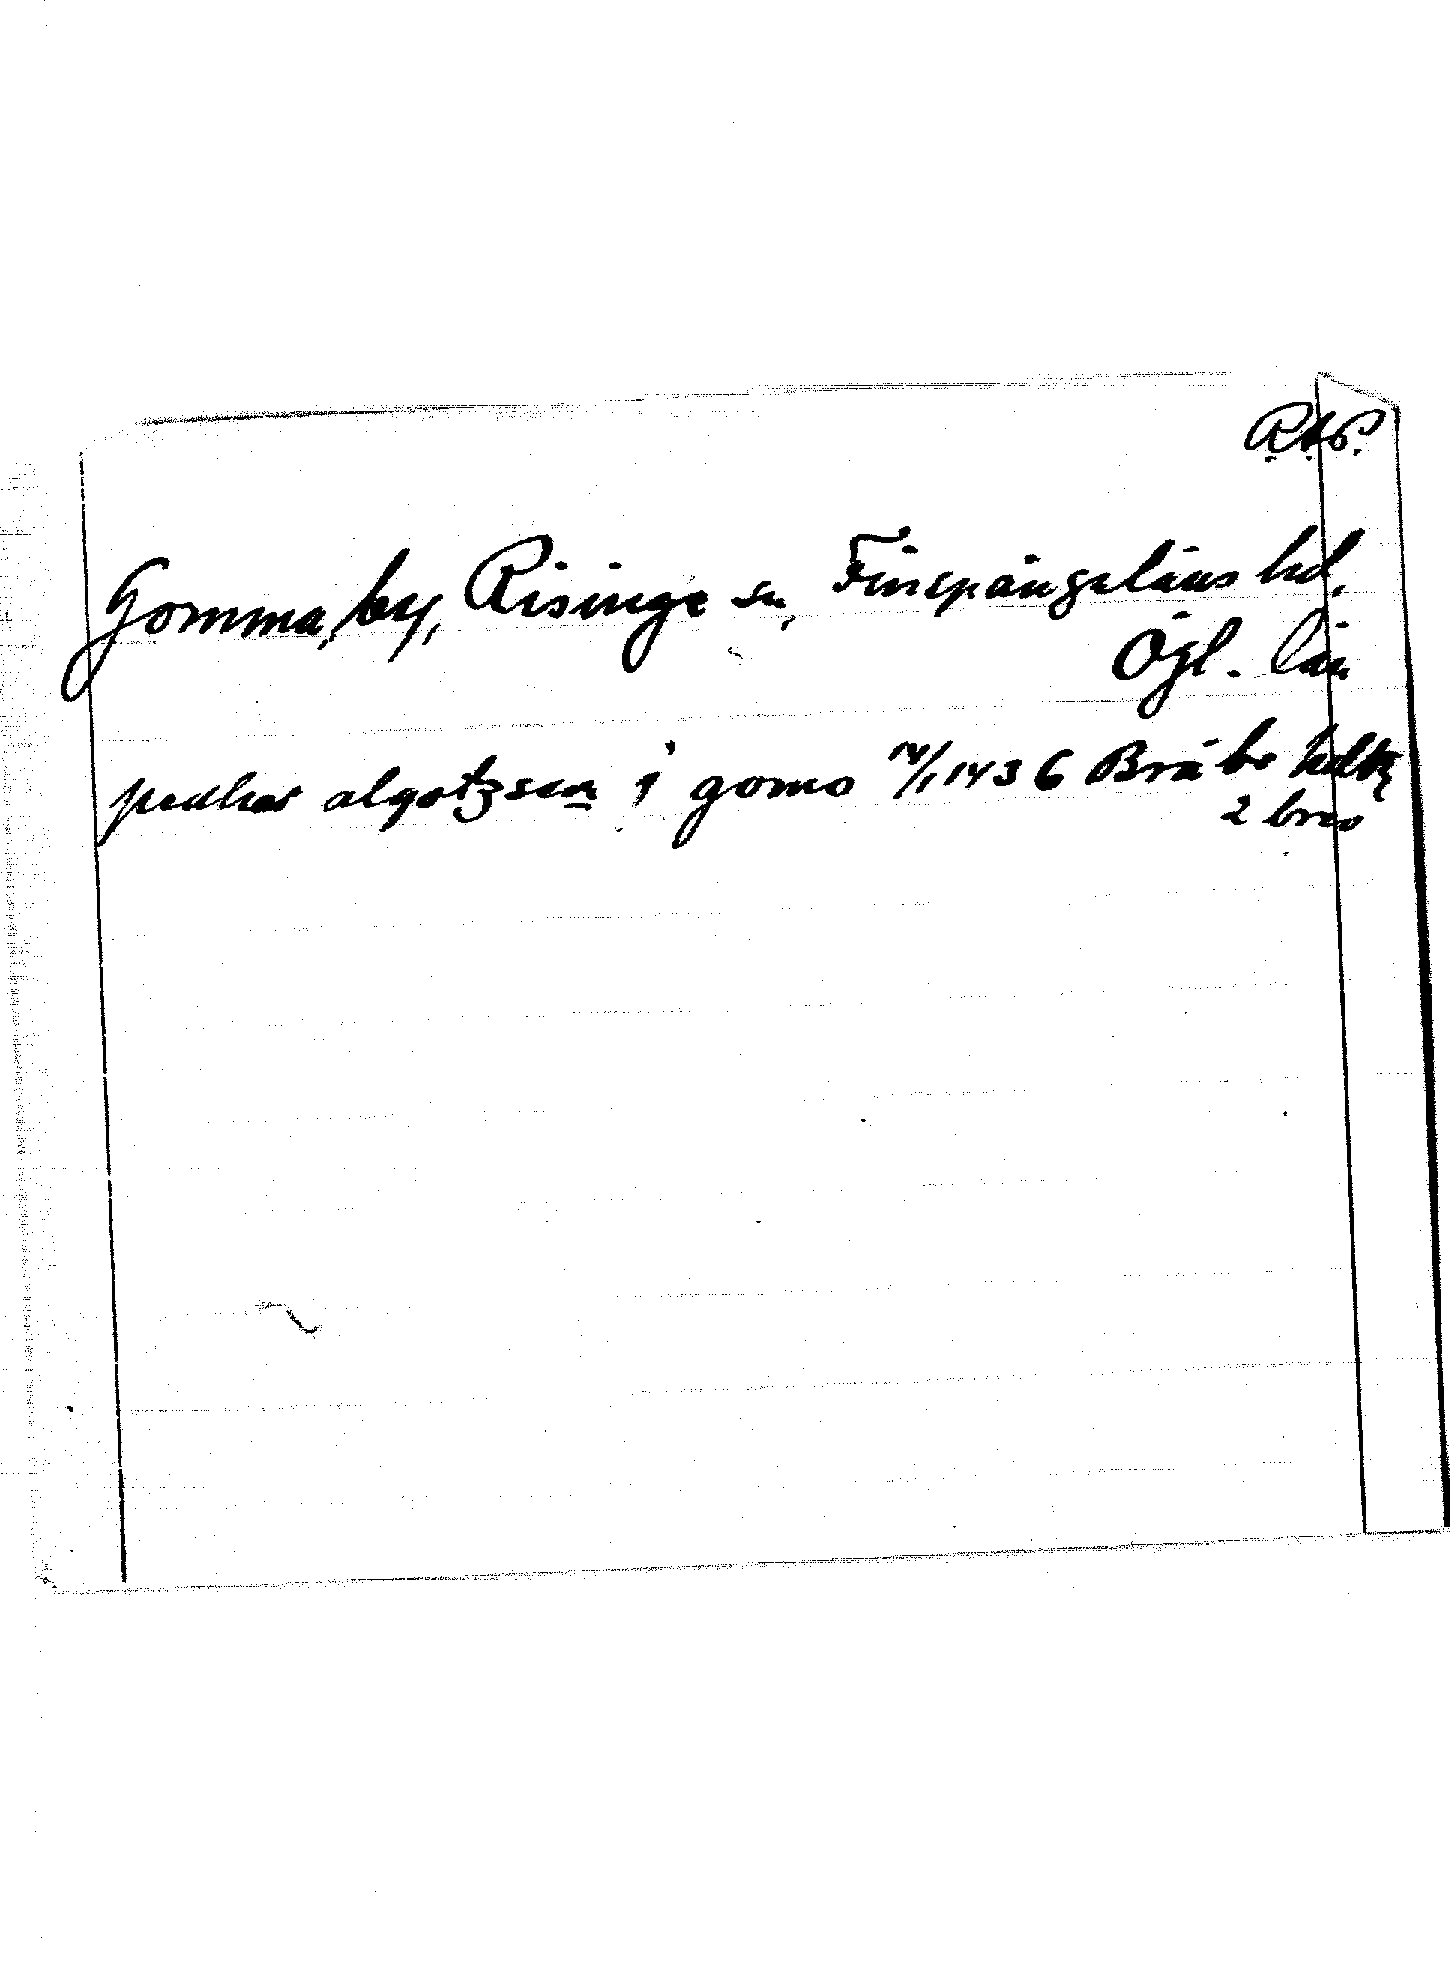 R.A.P.
Gomma, by, Risinge sn, Finspångeläns hd,
Ögl. län
pedhar algotzson j gomo 14/1 1436 Bråbo hdtz
2 brev